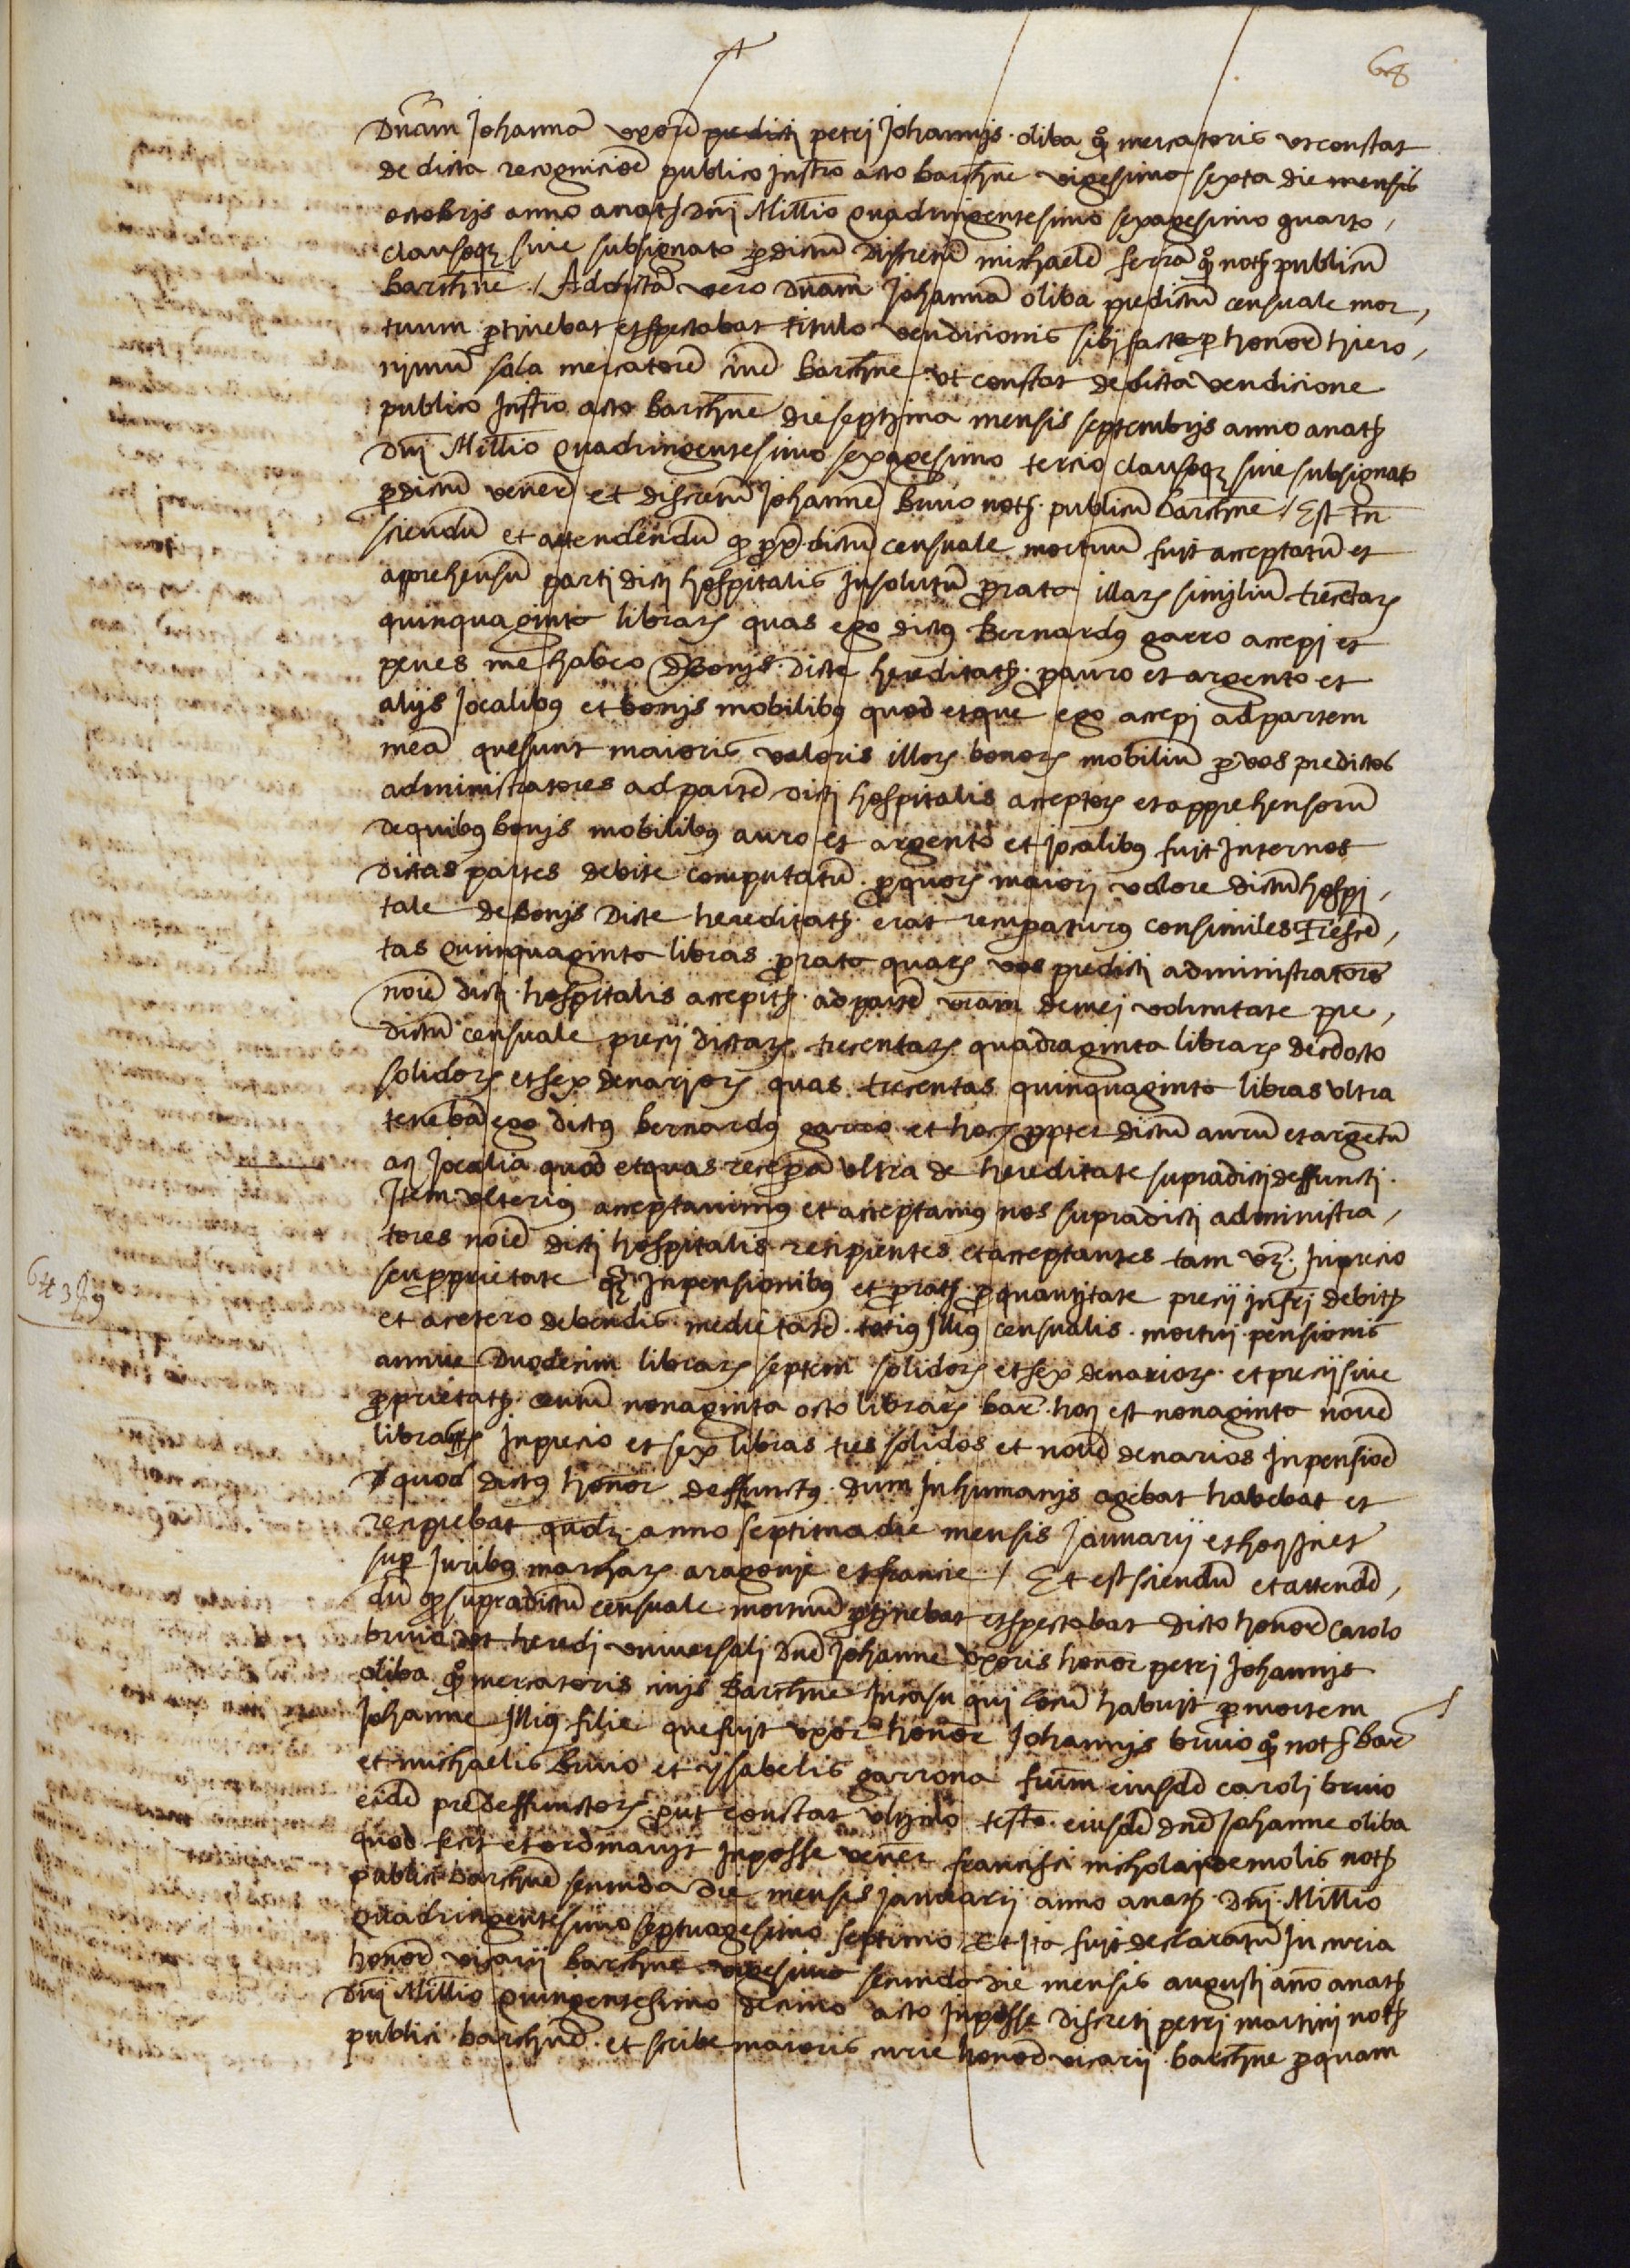 68
Dnam Johanna uxore predicti petri Johannis oliba qo mercatoris ut constat
de dicta recognicioe publico Instro acto barchne vigesima sexta die mensis
octobris anno anath dni Millio quadringentesimo sexagesimo quarto,
clausoqz sive subsignato p dictu discretu michaele ferra qo noth publicu
barchne / Ad dicta vero dnam Johanna oliba predictu censuale mor,
tuum ptinebat et spectabat titulo vendicionis sibi facte p honore hiero,
nimu sala mercatore cive barchne ut constat de dicta vendicione
publico Instro acto barchne die septima mensis septembris anno anath
Dni Millio quadringentesimo sexagesimo tercio clausoqz sive subsignato
p dictu venere et discretu Johanne bruio noth publicu barchne / Est tn
sciendu et attendendu q dictu censuale mortuu fuit acceptatu et
apprehensu parti dicti hospitalis Insolutu prato illarz similiu trecetarz
quinquaginta librarz quas ego dictus Bernardus garro accepi et
penes me habeo de bonis dicte hereditath p auro et argento et
alijs Jocalibus et bonis mobilibus quod et que ego accepi ad partem
mea que sunt maioris valoris illorz bonorz mobiliu p vos predictos
administratores ad parte dicti hospitalis acceptorz et apprehensoru
de quibus bonis mobilibus auro et argento et Jocalibus fuit Inter nos
dictas partes debite computatu p quorz maiori valore dictu hospi,
tale de bonis dicte hereditath erat recuperaturus consimiles Tresce,
tas quinquaginta libras prato quarz vos predicti administratores
noie dicti hospitalis accepith ad parte vram de mei voluntate pre,
dictu censuale precij dictarz trecentarz quadraginta librarz decdocto
solidorz et sex denariorz quas trecentas quinquaginta libras ultra
teneba ego dictus bernardus garro et hoc ppter dictu auru et argetu
ac Jocalia quod et quas recepa ultra de hereditate supradicti deffuncti
Item ulterius acceptavimus et acceptamus nos supradicti administra,
tores noie dicti hospitalis recipientes et acceptantes tam vz In precio
seu pprietate qz In pensionibus et prath p quantitate precij Infri debith
et a cetero debendis medietate totius Illius censualis mortui pensionis
annue Duodecim librarz septem solidorz et sex denariorz et precij sive
pprietath centu nonaginta octo librarz bar hoc est nonaginta nove
librarz In precio et sex libras tres solidos et nove denarios In pensioe
quod dictus honor deffunctus dum In humanis agebat habebat et
recipiebat quolz anno septima die mensis Januarij et hoc In et
sup Juribus marcharz aragonie et francie / Et est sciendu et attende,
du q supradictu censuale mortuu ptinebat et spectabat dicto honore Carolo
bruio ut heredi universali dne Johanne uxoris honor petri Johannis
oliba qo mercatoris civis barchne In casu qui locu habuit p mortem
Johanne Illius filie que fuit uxor honor Johannis bruio qo noth bar
et michaelis bruio et ysabelis garrona fium eiusde caroli bruio
eide predeffunctorz put constat ultimo testo eiusde dne Johanne oliba
quod fecit et ordinavit In posse vener francisci nicholai de molis noth
publici barchne secunda die mensis Januarij anno anath Dni Millio
quadringentesimo septuagesimo septimo Et Ita fuit declaratu In curia
honore vicarij barchne vigesima secunda die mensis augusti ano anath
Dni Millio quingentesimo decimo acto In posse discreti petri martini noth
publici barchne et scribe maioris curie honore vicarij barchne p quam